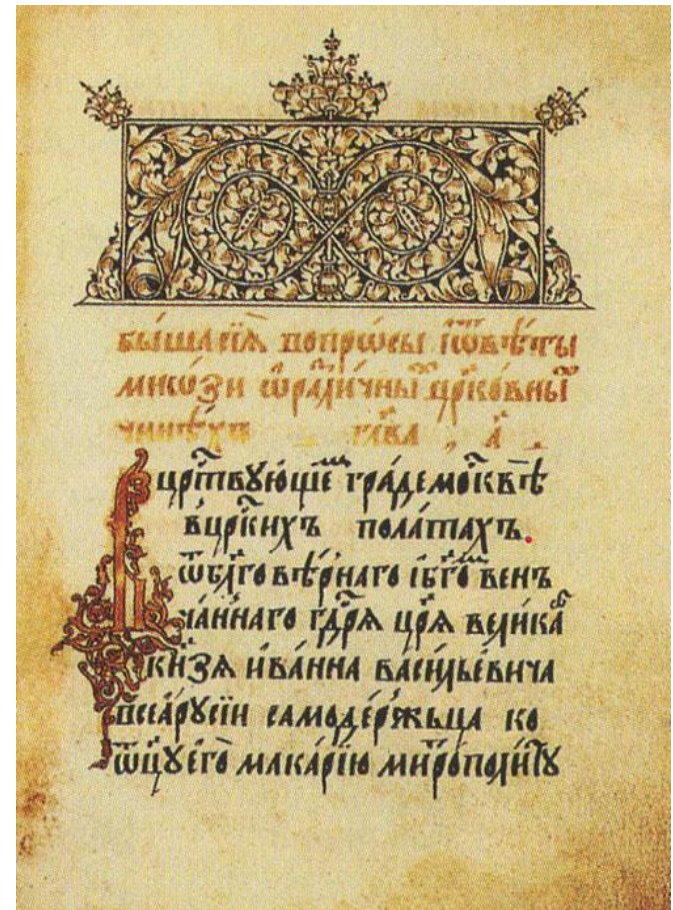 бы́ша сїѧ̀ вопрѡсы iѿвѣ́ты
мнѡ́зи ѡразли́чныⷯ црⷦ҇ко́вныⷯ
чинѣ́хъ глава̀ , а҃ .
Вцрⷭ҇твꙋ́ющеⷨ гра́де моⷭ҇квѣ̀
вцрⷭ҇кихъ пола́тахъ.
ѿ бл҃гове́рнаго iбг҃оⷨ венъ
ча́ннаго гдⷭ҇рѧ црѧ̀ вели́каⷢ҇
кнѧ́зѧ ива́нна васи́льевича
всеа̀ рꙋсїи самоде́ржьца ко
ѿцꙋ̀ его̀ мака́рїю митропо́литꙋ